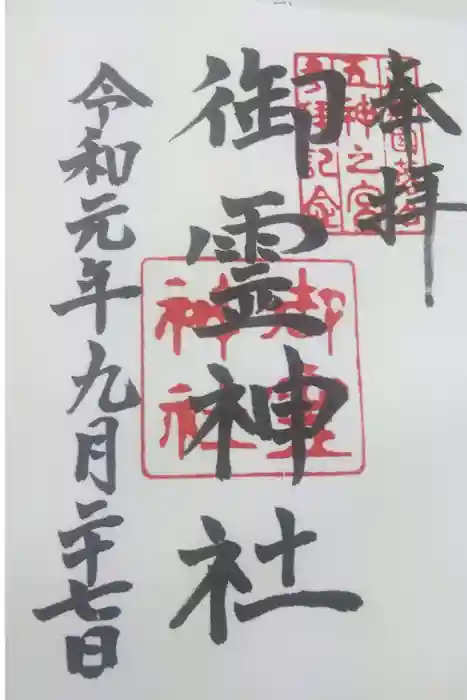 奉拝
五神之宮
御霊神社
御霊
神社
令和元年九月二十七日